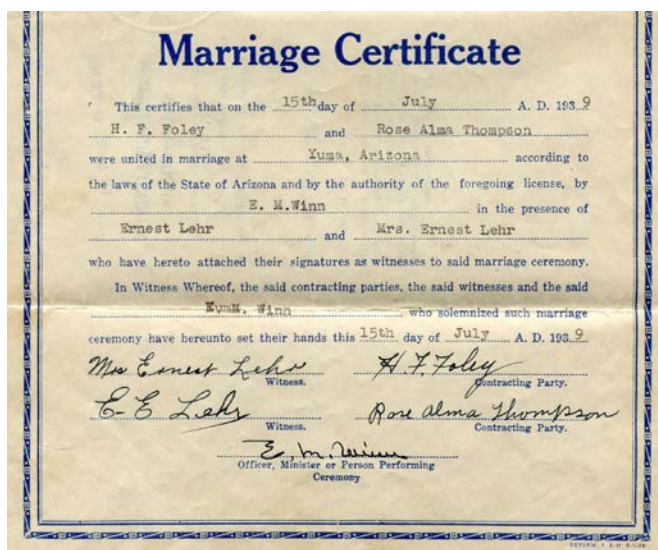 Marriage Certificate
This certifies that on the 15th day of July A. D. 1939
H. F. Foley and Rose Alma Thompson
were united in marriage at Yuma, Arizona according to
the laws of the State of Arizona and by the authority of the foregoing license, by
E. M.Winn in the presence of
Ernest Lehr and Mrs. Ernest Lehr
who have hereto attached their signatures as witnesses to said marriage ceremony.
In Witness Whereof, the said contracting parties, the said witnesses and the said
Winn who solemnized such marriage
ceremony have hereunto set their hands this 15th day of July A. D. 1939
Mrs Ernest Lehr H F. Foley
Witness. Contracting Party.
E-E Lehr Rose Alma Thompson
Witness. Contracting Party.
E. M. Winn
Officer, Minister or Person Performing
Ceremony